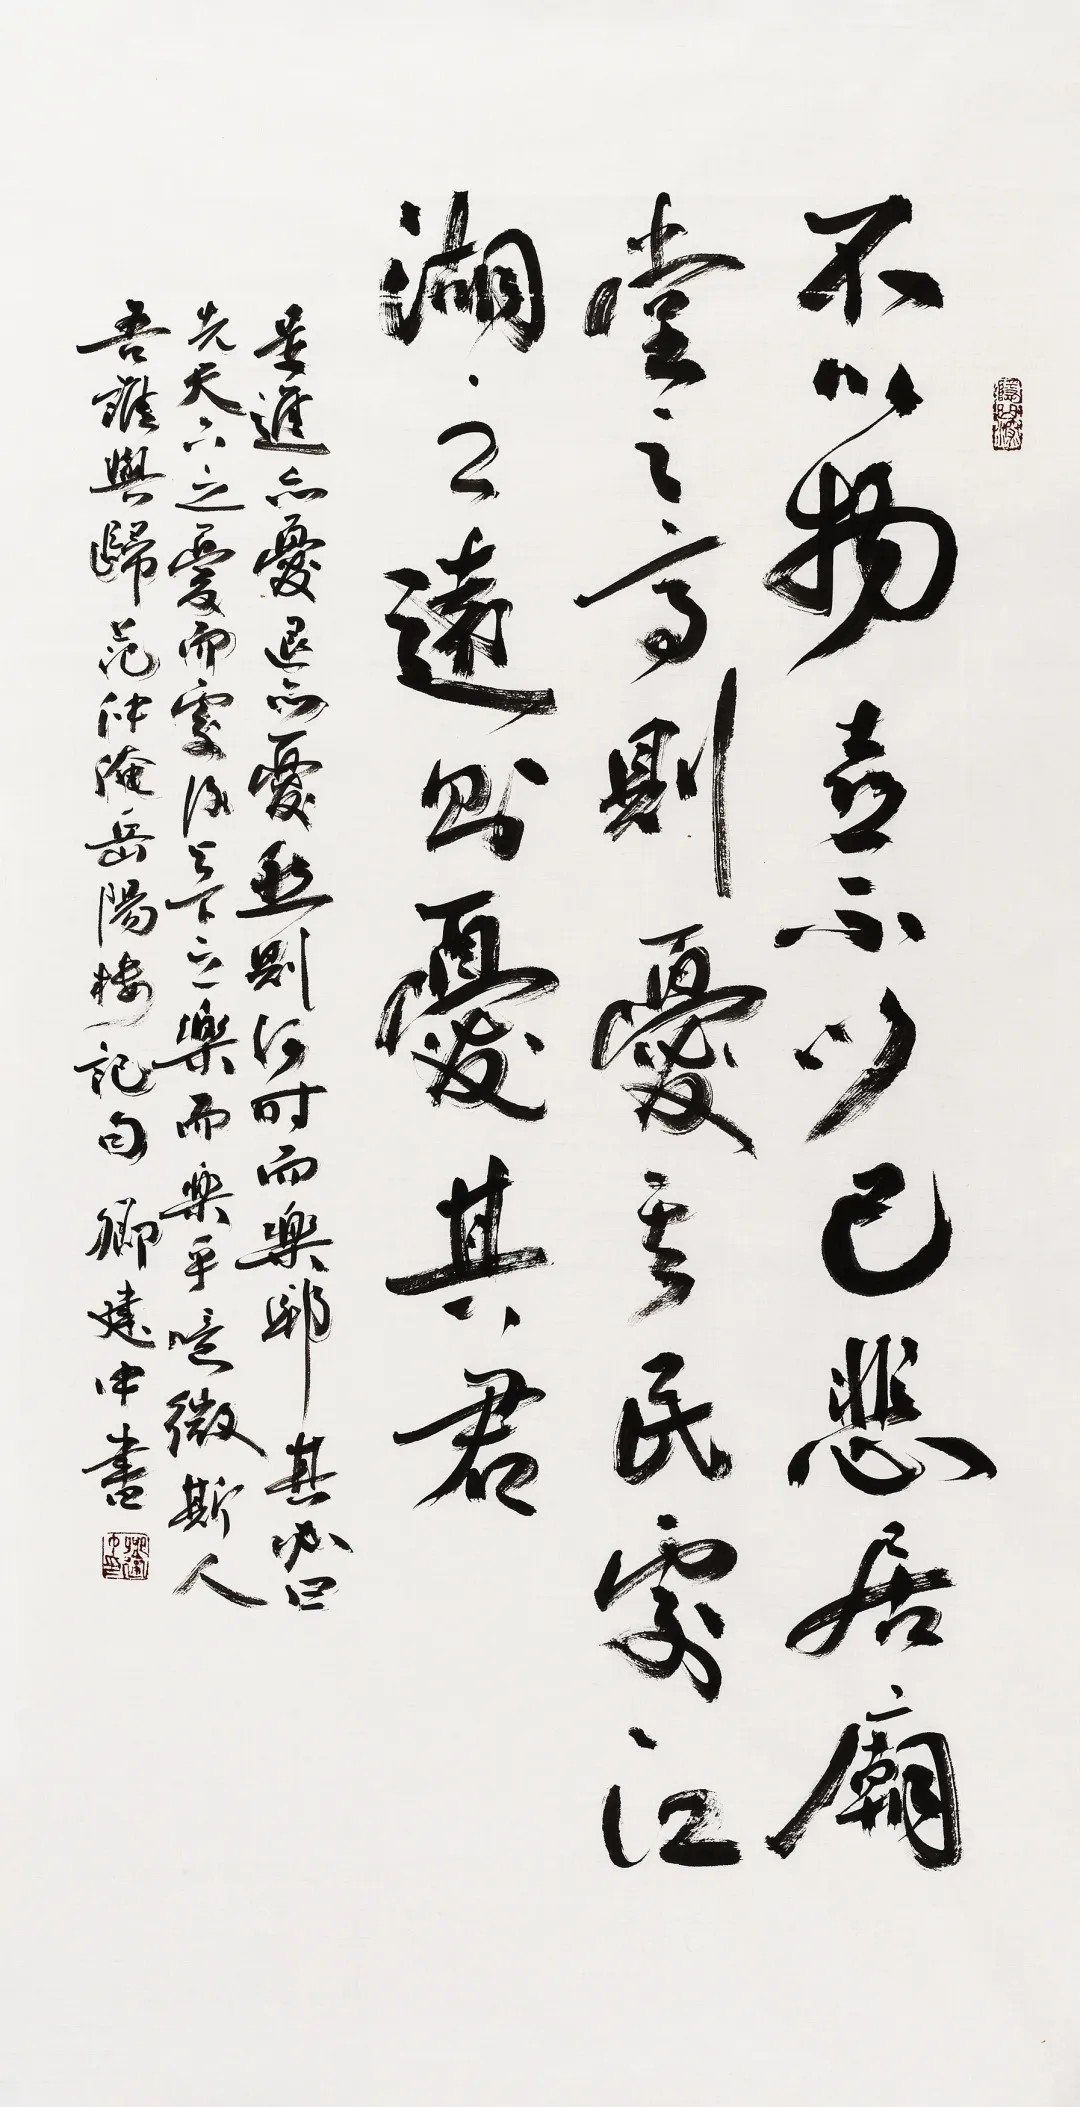 不以物喜不以己悲居廟
堂之高則憂其民處江
湖之遠則憂其君
是進亦憂退亦憂然則何时而樂耶其必曰
先天下之憂而憂後天下之樂而樂乎噫微斯人
吾誰與歸范仲淹岳陽樓記句 卿建中書